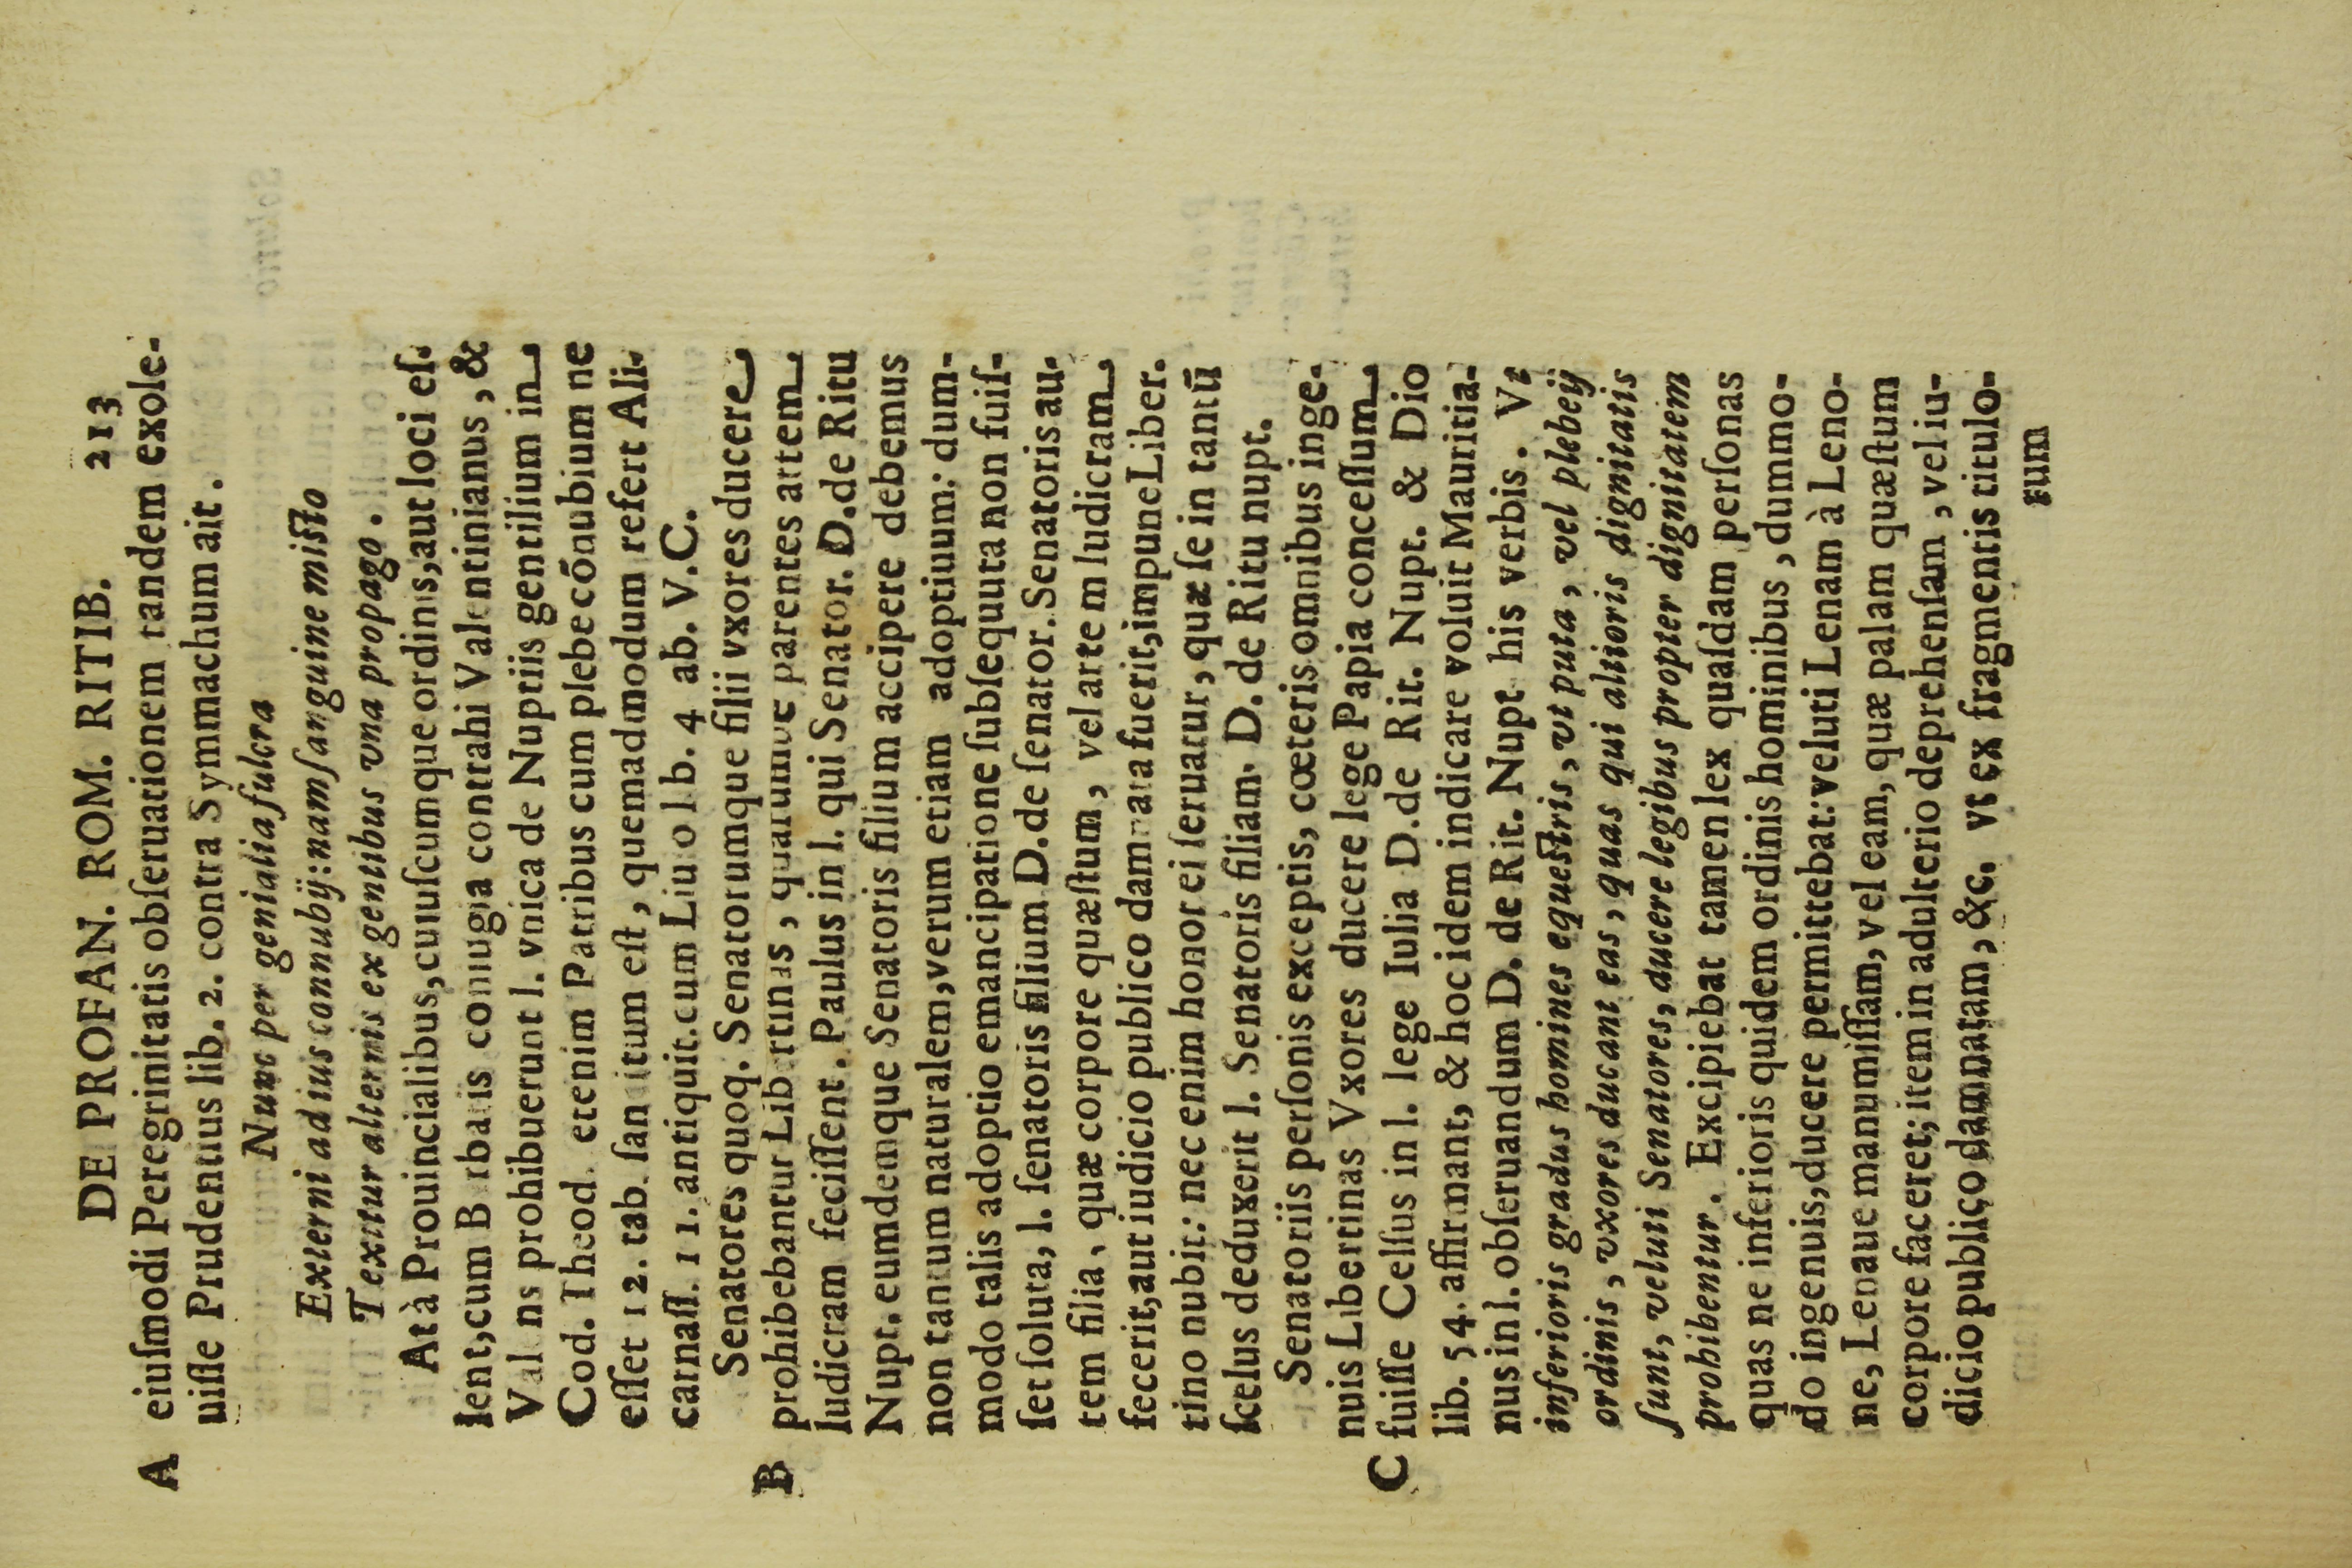 DE PROFAN. ROM. RITIB. 213
A eiuſmodi Peregrinitatis obſeruationem tandem exole-
uiſſe Prudentius lib. 2. contra Symmachum ait.
Nunc per genialia fulcra
Externi ad ius connubij: nam ſanguine miſto
Texitur alternis ex gentibus vna propago.
At à Prouincialibus, cuiuſcumque ordinis, aut loci eſ-
ſent, cum B rba is coniugia contrahi Valentinianus, &
Val ns prohibuerunt l. vnica de Nuptiis gentilium in
Cod. Theod. etenim Patribus cum plebe cōnubium ne
eſſet 12. tab. ſan itum eſt, quemadmodum refert Ali-
carnaſſ. 11. antiquit. cum Liu o l b. 4 ab. V. C.
Senatores quoq. Senatorumque filii vxores ducere
B prohibebantur Lib rtinas, quarumue parentes artem
ludicram feciſſent. Paulus in l. qui Senator. D. de Ritu
Nupt. eumdemque Senatoris filium accipere debemus
non tantum naturalem, verum etiam adoptiuum: dum-
modo talis adoptio emancipatione ſubſequuta non fuiſ-
ſet ſoluta, l. ſenatoris filium D. de ſenator. Senatoris au-
tem filia, quæ corpore quæſtum, vel arte m ludicram
fecerit, aut iudicio publico damnata fuerit, impune Liber-
tino nubit: nec enim honor ei ſeruatur, quæ ſe in tantū
ſcelus deduxerit l. Senatoris filiam. D. de Ritu nupt.
Senatoriis perſonis exceptis, cœteris omnibus inge-
nuis Libertinas Vxores ducere lege Papia conceſſum
C fuiſſe Celſus in l. lege Iulia D. de Rit. Nupt. & Dio
lib. 54. affirmant, & hoc idem indicare voluit Mauritia-
nus in l. obſeruandum D. de Rit. Nupt his verbis. Vt
inferioris gradus homines equeſtris, vt puta, vel plebeij
ordinis, vxores ducant eas, quas qui altioris dignitatis
ſunt, veluti Senatores, ducere legibus propter dignitatem
prohibentur. Excipiebat tamen lex quaſdam perſonas
quas ne inferioris quidem ordinis hominibus, dummo-
do ingenuis, ducere permittebat: veluti Lenam à Leno-
ne, Lenaue manumiſſam, vel eam, quæ palam quæſtum
corpore faceret; item in adulterio deprehenſam, vel iu-
dicio publico damnatam, &c. vt ex fragmentis titulo-
rum